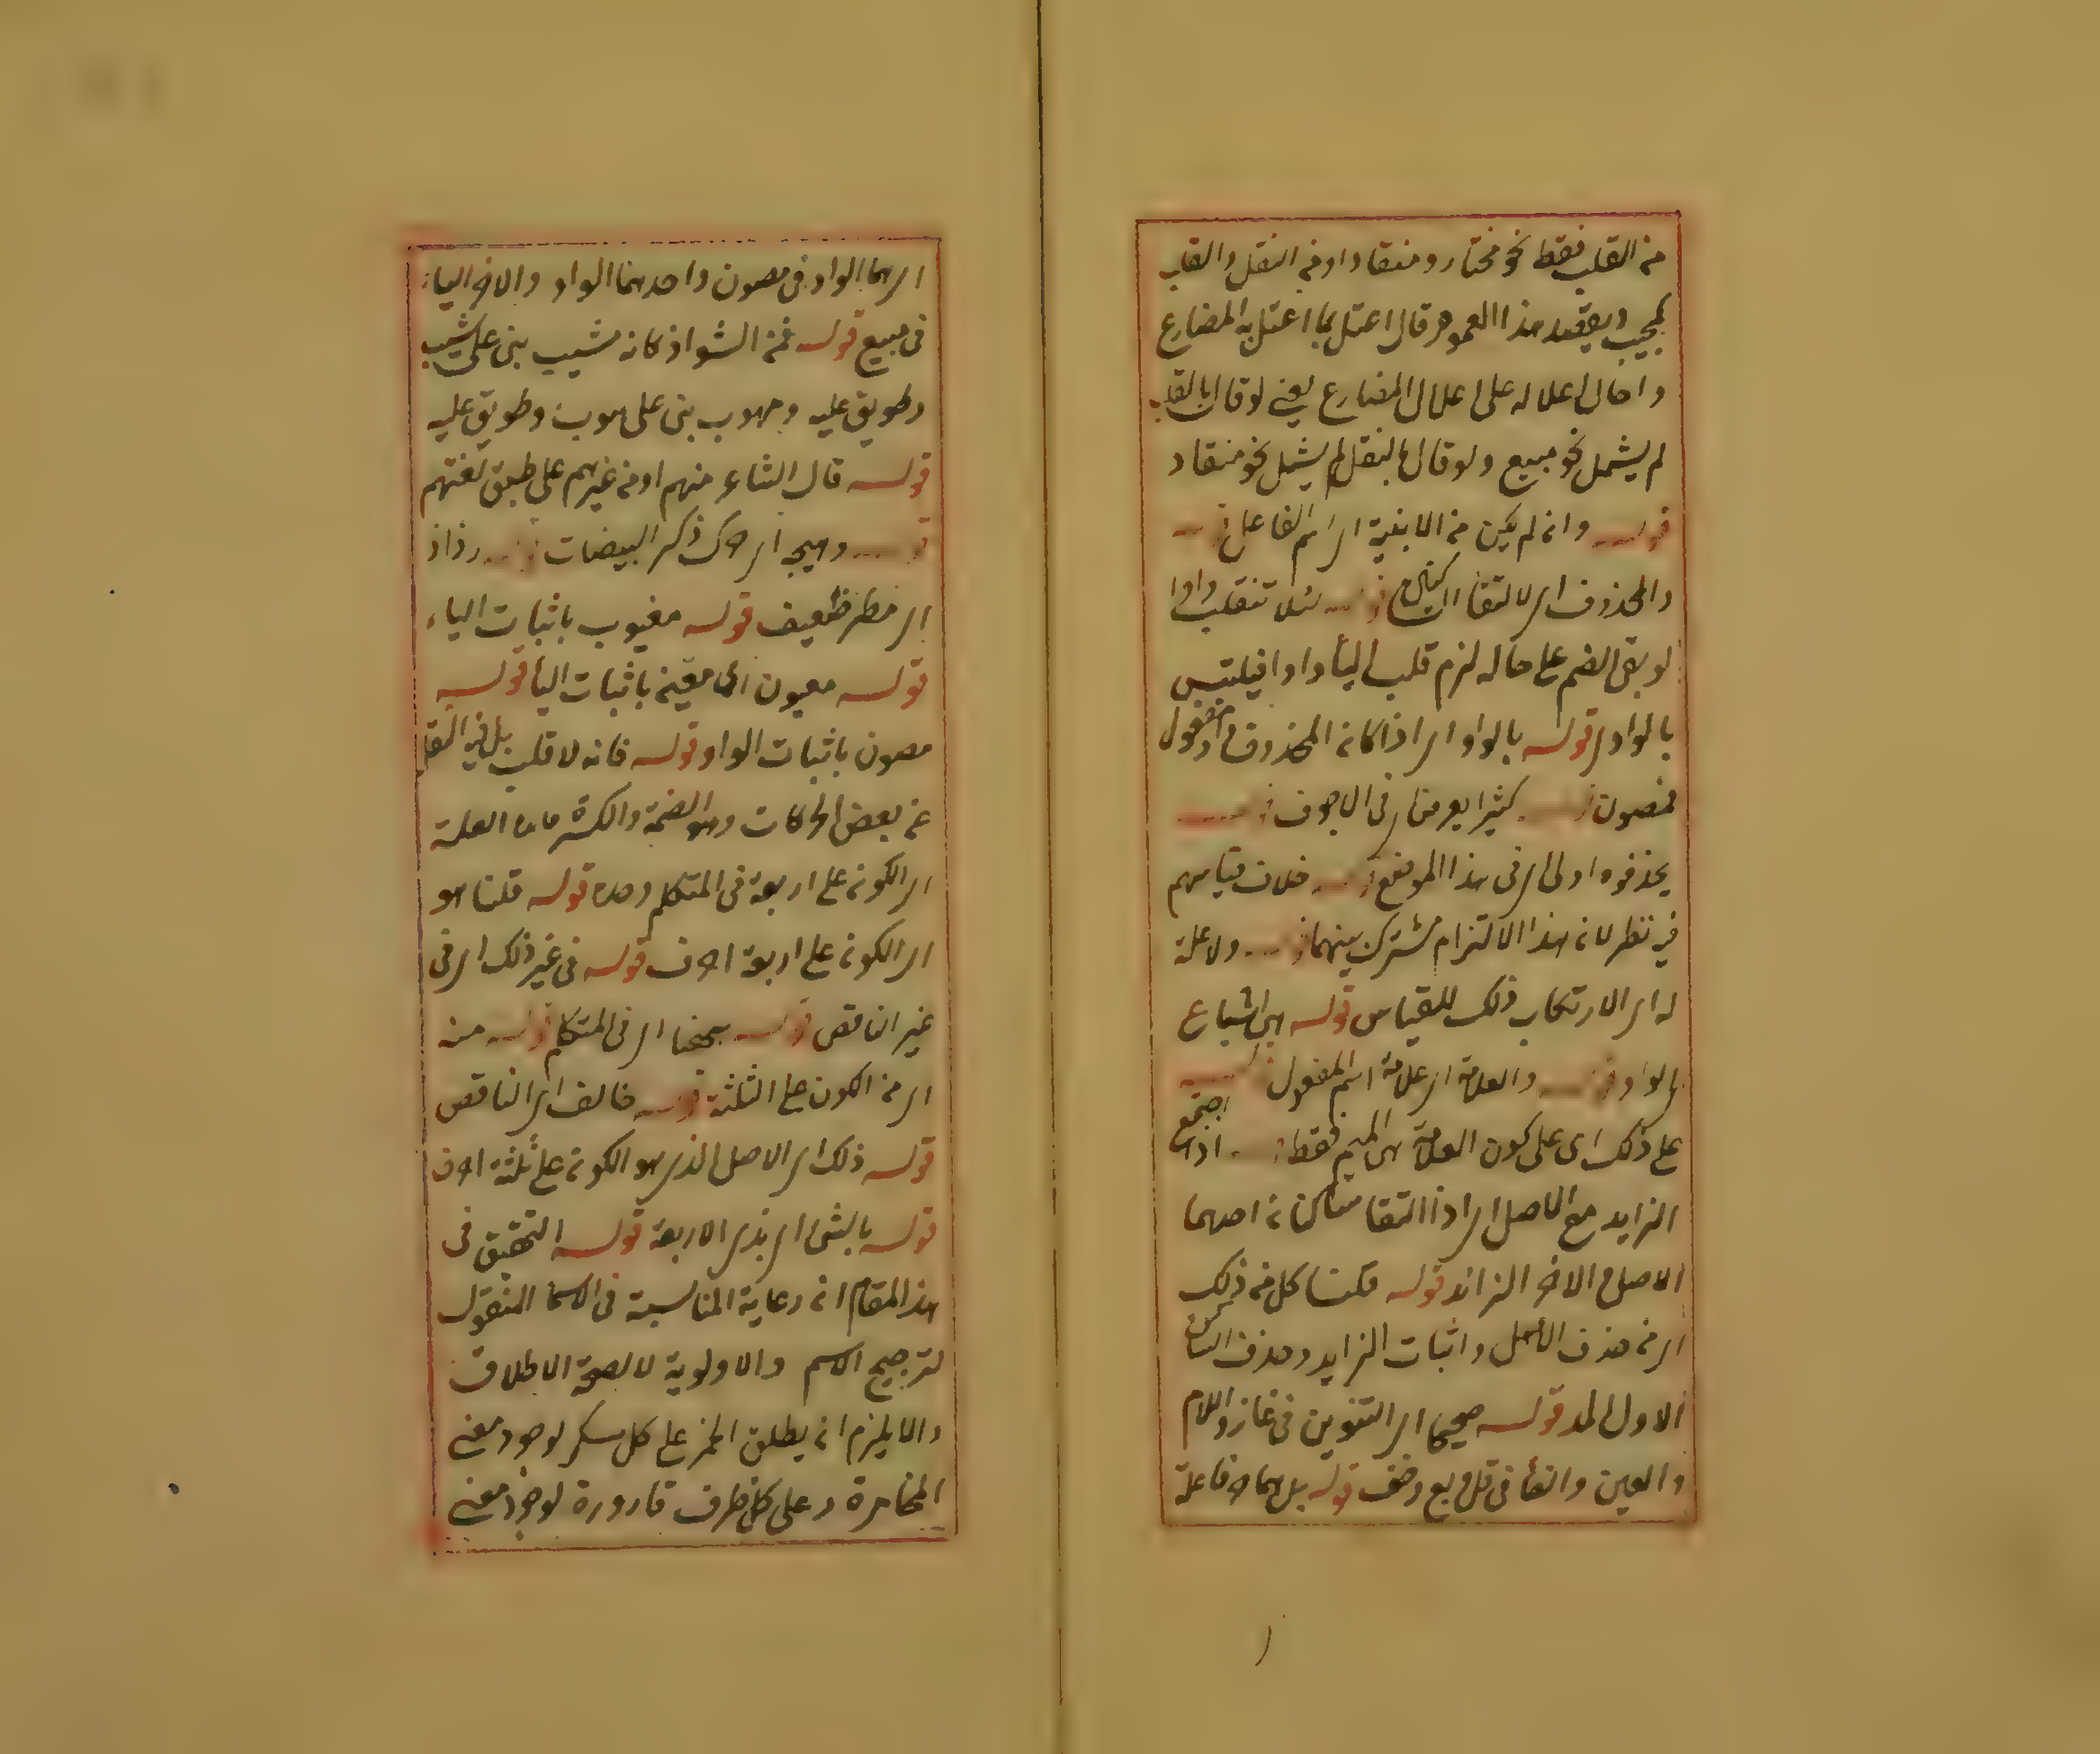 من القلب فقط نحو مختار ومنقاد او من النقل والقلب
كمجيب ويقصد هذا العموم قال اعتل بما اعتل به المضارع
واحال اعلاله على اعلال المضارع يعنى لو قال بالقلب
لم يشمل نحو مبيع ولو قال بالنقل لم يشمل نحو منقاد
قوله وان لم يكن من الابنية اى اسم الفاعل قوله
والمحذوف اى لالتقاء الساكنين قوله لئلا تنقلب واوا
لو بقى الضم على حاله لزم قلب الياء واوا فيلتبس
بالواوى قوله بالواو اى اذا كان المحذوف واو مفعول
فمصون قوله كثيرا يعرض اى فى الاجوف قوله
يحذفوه اولى اى فى هذا الموضع قوله خلاف قياسهم
فيه نظر لان هذا الالتزام مشترك بينهما قوله ولا علة
له اى الارتكاب ذلك للقياس قوله هى اشباع
الواو قوله والعلامة اى علامة اسم المفعول قوله
على ذلك اى على كون العلامة هى الميم فقط قوله اذا اجتمع
الزايد مع الاصل اى اذا التقا ساكنان احدهما
الاصل والاخر الزائد قوله فكنا كل من ذلك
اى من حذف الاصل واثبات الزايد وحذف الساكن
الاول لمد قوله صحيحا اى التنوين فى غاز واللام
والعين والفاء فى قل وبع وخف قوله بل هما
اى هما الواو فى مصون واحدهما الواو والاخر الياء
فى مبيع قوله فمن الشواذ كانه مشيب بنى على شيب
وطويق عليه ومهوب بنى على هوب وطويق عليه
قوله قال الشاعر منهم او من غيرهم على طبق لغتهم
قوله وهيجه اى حرك ذكر البيضات قوله رذاذ
اى مطر ضعيف قوله مغيوب باثبات الياء
قوله معيون اى باثبات الياء قوله
مصون باثبات الواو قوله فانه لا قلب بل فيه النقل
عن بعض الحركات وهو الضمة والكسرة العلة
اى الكون على اربعة فى المتكلم وحده قوله قلنا هو
اى الكون على اربعة احرف قوله فى غير ذلك اى فى
غير الناقص قوله بحثنا اى فى المتكلم قوله منه
اى من الكون على الثلثة قوله خالف اى الناقص
قوله ذلك اى الاصل الذى هو الكون على ثلثة احرف
قوله بالشئ اى بذى الاربعة قوله التحقيق فى
هذا المقام ان رعاية المناسبة فى الاسماء المنقول
لترجيح الاسم والاولوية لا لصحة الاطلاق
والا يلزم ان يطلق الخمر على كل مسكر لوجود معنى
المخامرة وعلى كل ظرف قارورة لوجود معنى